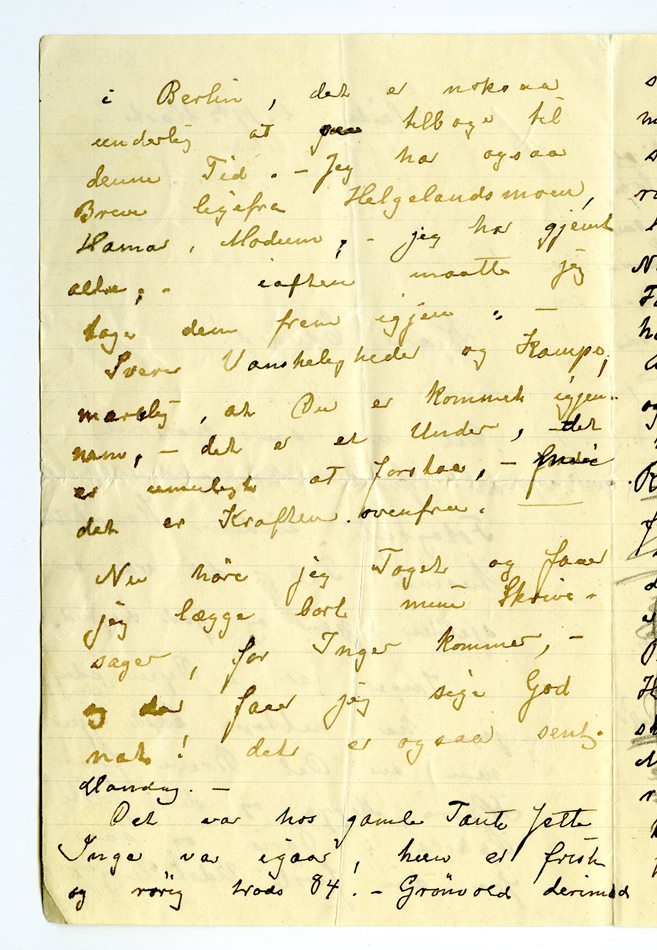 i Berlin, det er noksaa
underlig at gaa tilbage til
denne Tid. - Jeg har ogsaa
Breve ligefra Helgelandsmoen,
Hamar, Modum, - jeg har gjemt
alle, - iaften maatte jeg
tage dem frem igjen. -
Svere Vanskeligheder og Kampe,
mærkelig, at Du er kommet igjen-
nem, - det er et Under, - det
er umuligt at forstaa, -
det er Kraften ovenfra.
Nu hører jeg Toget og faar
jeg lægge bort mine Skrive-
sager, for Inger kommer, -
og da faar jeg sige God
nat! det er ogsaa sent. -
Mandag. -
Det var hos gamle Tante Jette
Inger var igaar, hun er frisk
og rørig trods 84! - Grönvold derimod